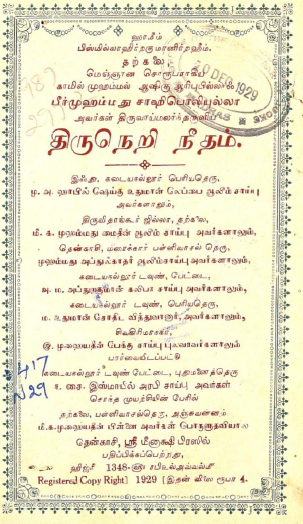 ஹாமீம்
பிஸ்மில்லாஹிர்றகுமானிர்றஹீம்.
தற்கலை
மெய்ஞான சொரூபராகிய
காமில் முஹம்மல் ஆஷிகு ஆரிபுபில்லாஹி
பீர்முஹம்மது சாஹிபொலியுல்லா
அவர்கள் திருவாய்மலர்ந்தருளிய
திருநெறி நீதம்.
20 DEC. 1929
இஃது, கடையநல்லூர் பெரியதெரு,
மு. அ. ஹாபில் ஷெய்கு உதுமான் லெப்பை ஆலிம் சாய்பு
அவர்களாலும்,
திருவிதாங்கூர் ஜில்லா, தற்கலை,
மீ. க. முஹம்மது மைதீன் ஆலிம் சாய்பு அவர்களாலும்,
தென்காசி, மரைக்கார் பள்ளிவாசல் தெரு,
முஹம்மது அப்துல்காதர் ஆலிம்சாய்பு அவர்களாலும்,
கடையநல்லூர் டவுண், பேட்டை,
அ. ம. அப்துற்றகுமான் கலிபா சாய்பு அவர்களாலும்,
கடையநல்லூர் டவுண், பெரியதெரு,
ம. உதுமான் சோதிட வித்துவானூர், அவர்களாலும்,
இ. முஹையதீன் பேக்கு சாய்பு புலவரவர்களாலும்
பார்வையிடப்பட்டு
கடையநல்லூர் டவுண் பேட்டை, புதுமனைத்தெரு
க. சை. இஸ்மாயில் அரபி சாய்பு அவர்கள்
சொந்த முயற்சியின் பேரில்
தற்கலை, பள்ளிவாசல்தெரு, அஞ்சுவன்னம்
மீ.க.முஹையதீன் பிள்ளை அவர்கள் பொருளுதவியால்
தென்காசி, ஸ்ரீ மீனாக்ஷி பிரஸில்
பதிப்பிக்கப்பெற்றது,
ஹிஜ்ரி 1348-ஹு றபிஉல்அவ்வல்மீ
Registered Copy Right] 1929 [இதன் விலை ரூபா
417
N29